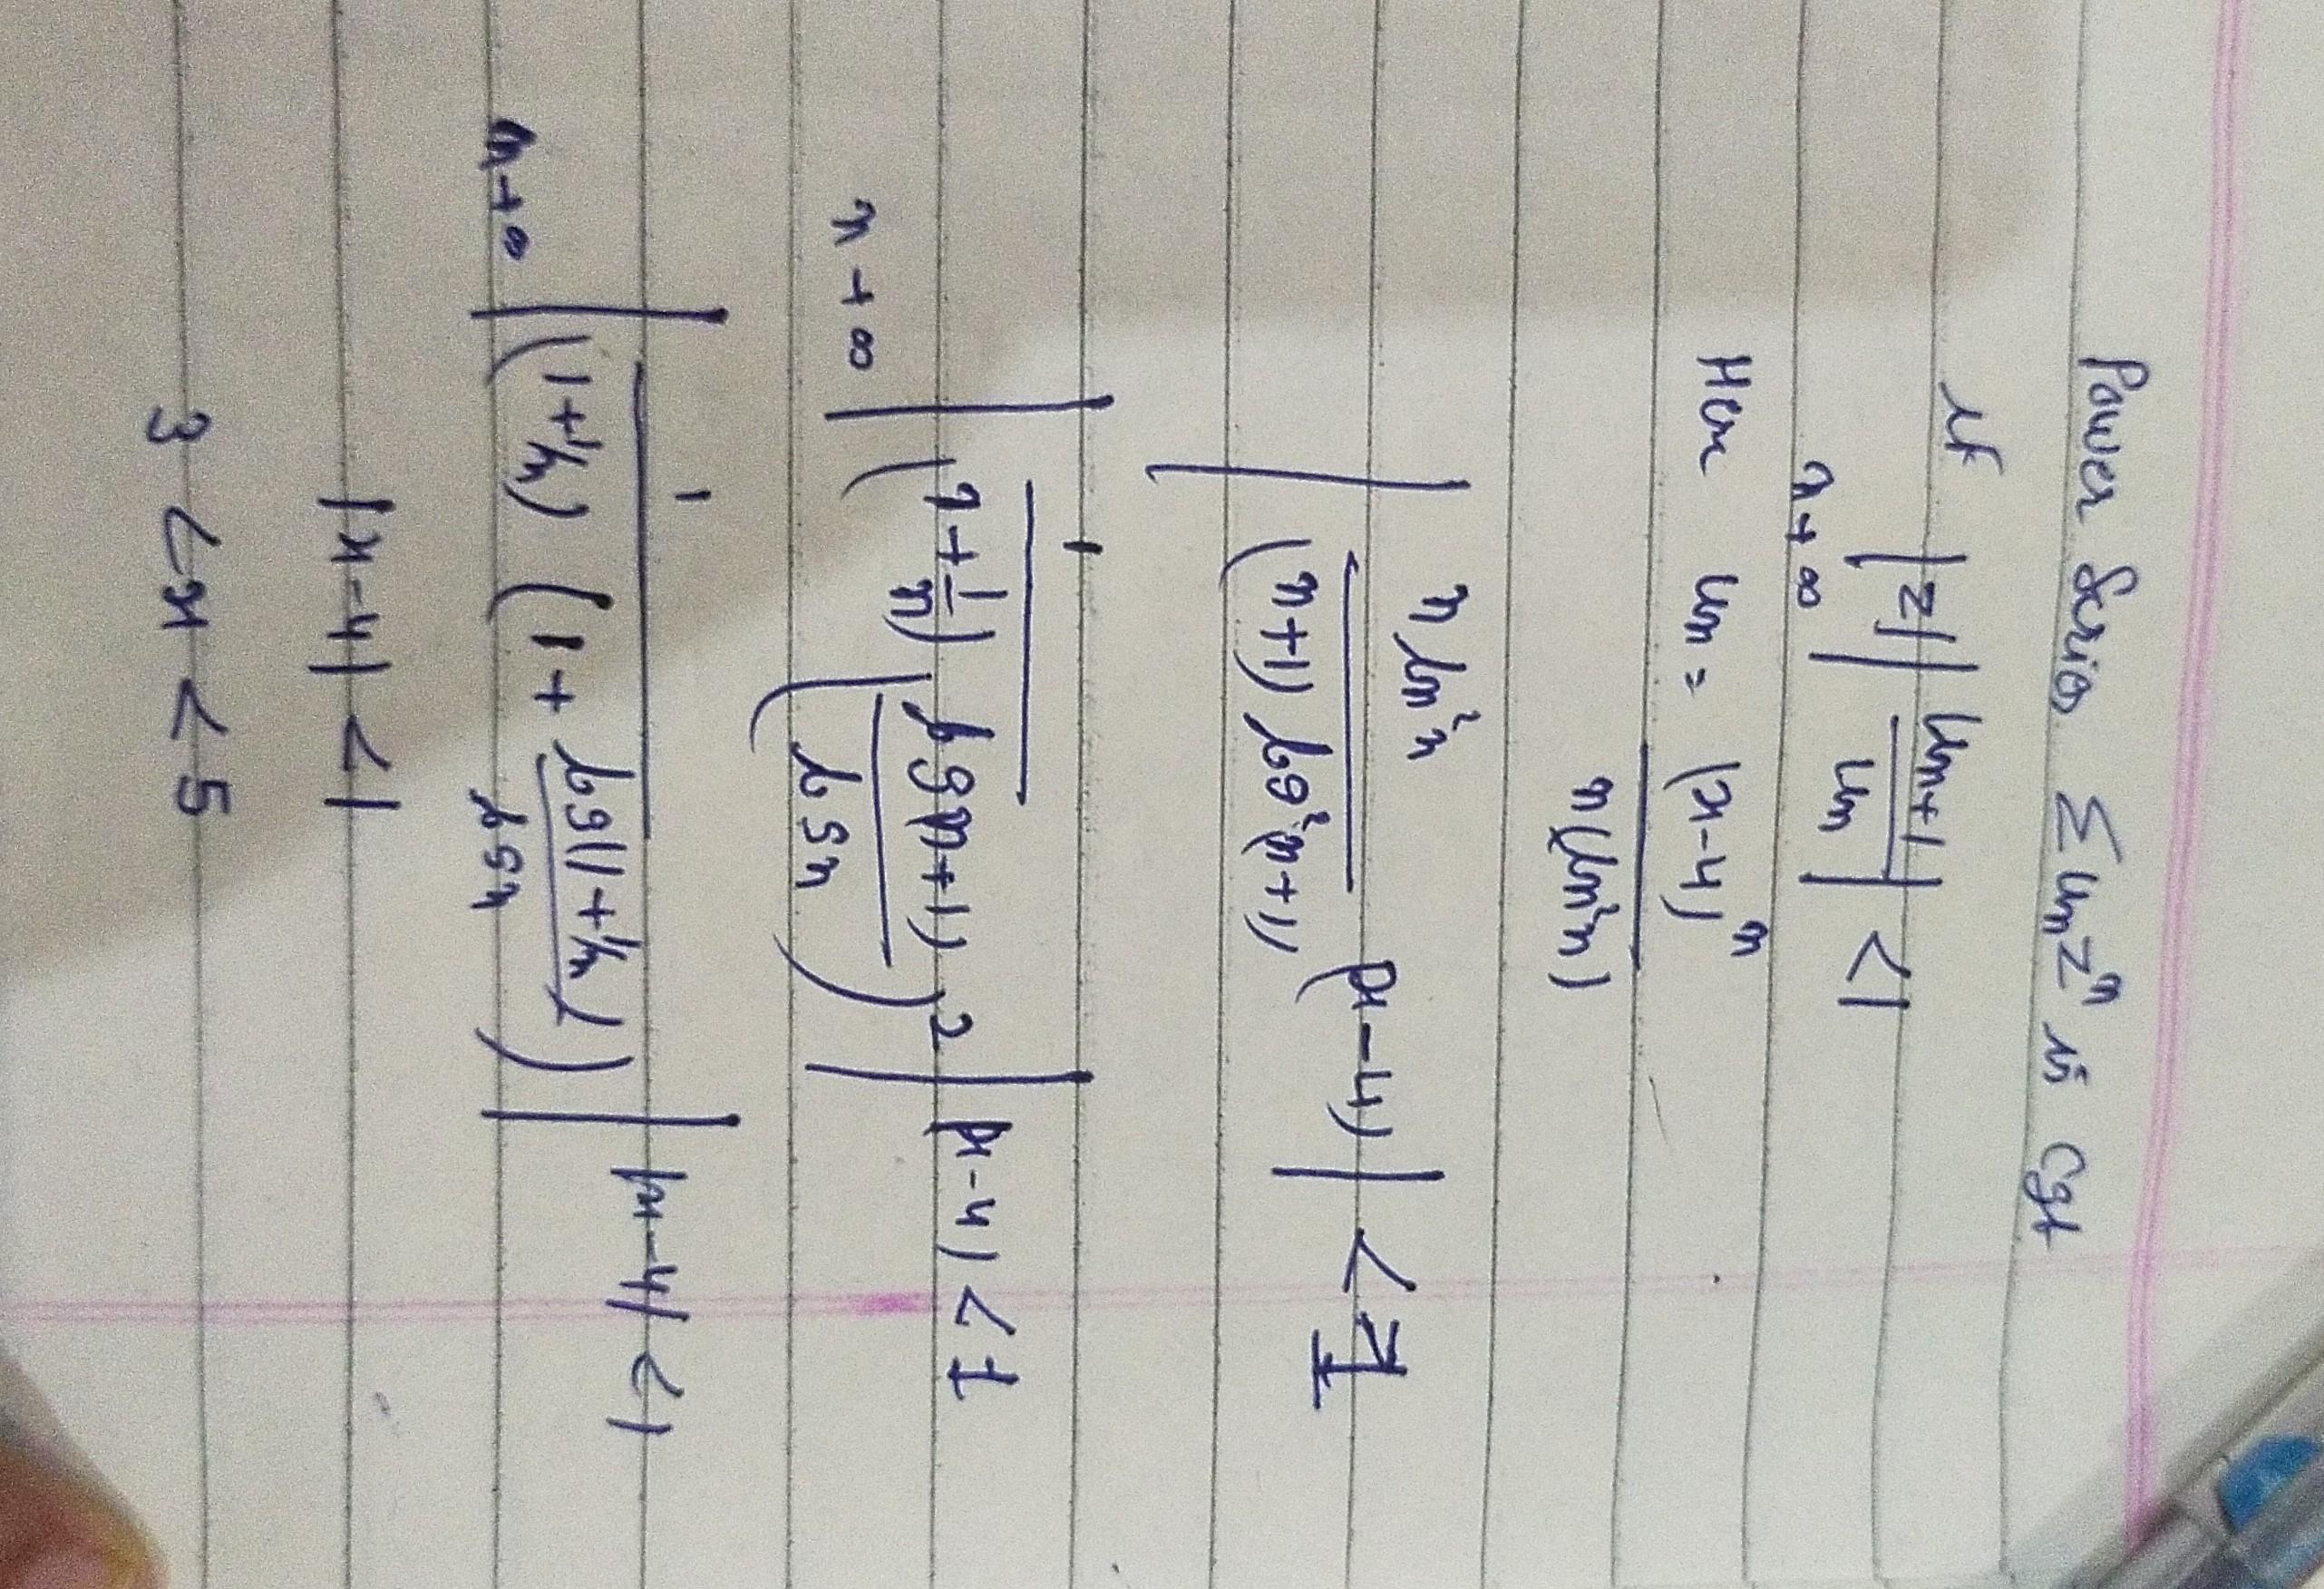 Power Series ∑ unzⁿ is cgt
if
n→∞ |z| |un+1/un| <1
Here un = (x-4)ⁿ / n(ln²n)
| n ln²n / (n+1) log²(n+1) (x-4) | < 1
n→∞ | 1 / (1+1/n) (log(n+1)/logn)² | |x-4| < 1
n→∞ | 1 / (1+1/n) (1 + log(1+1/n)/logn) | |x-4| <1
|x-4| <1
3 <x < 5